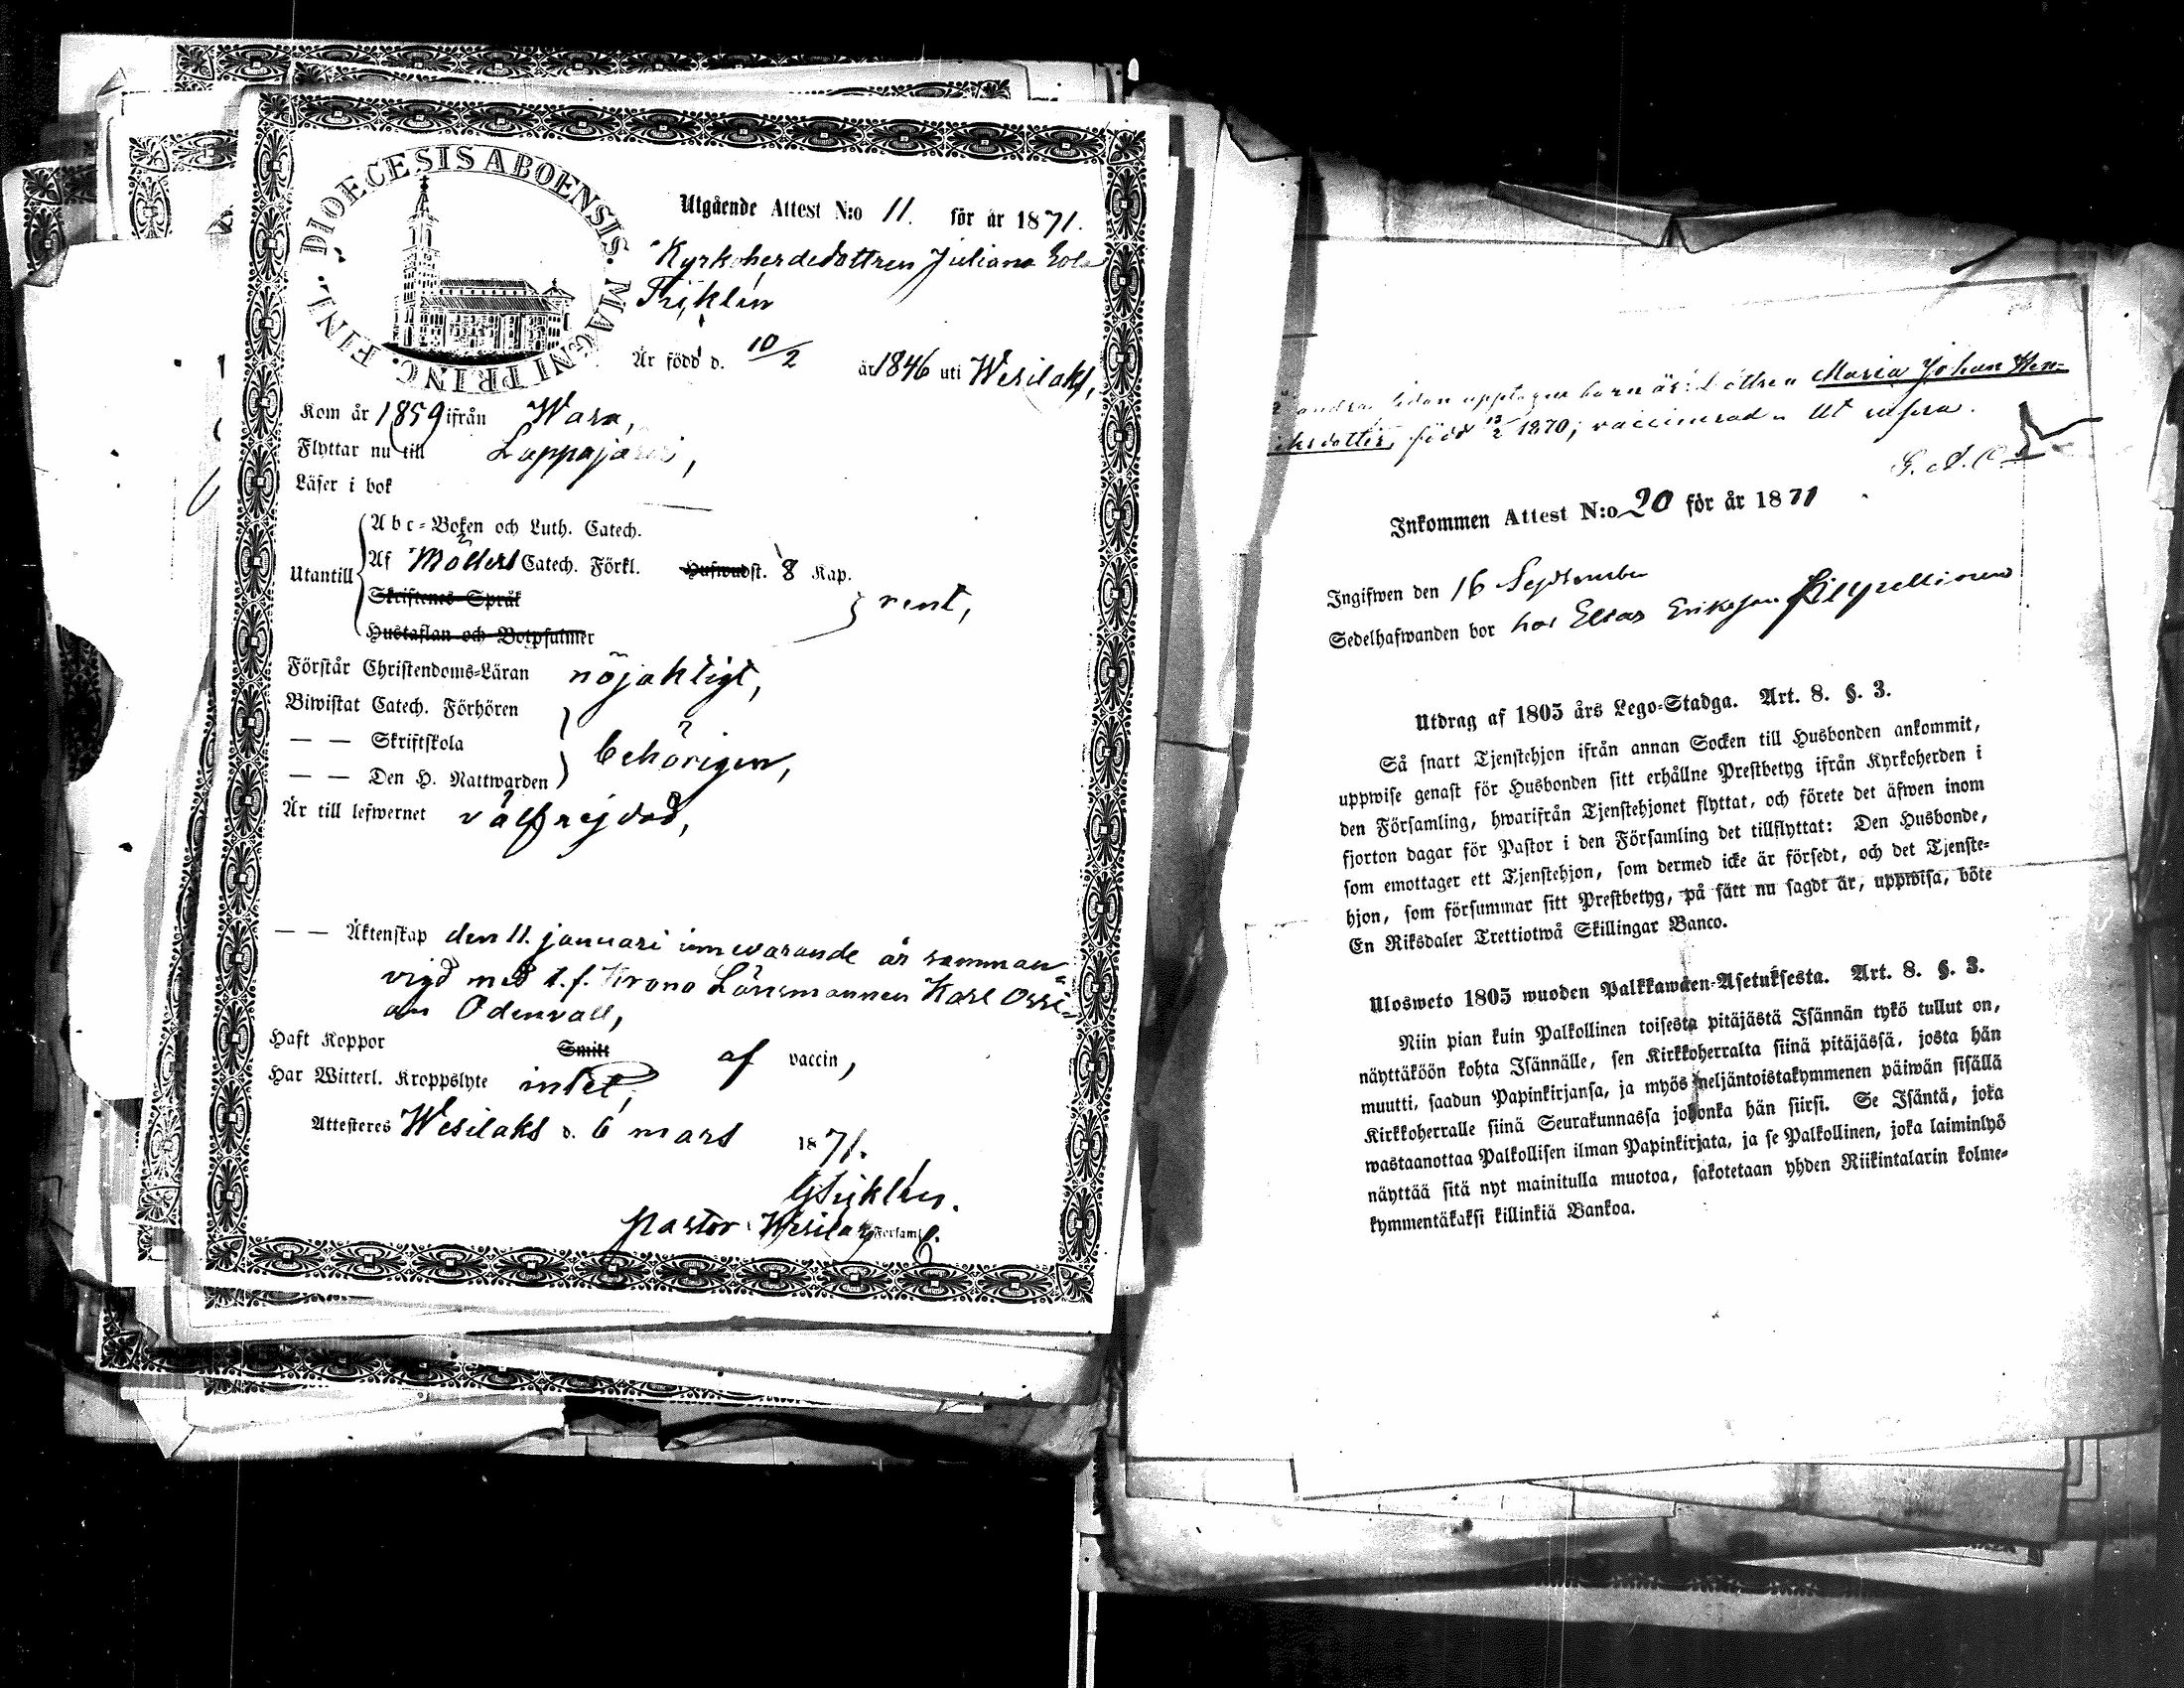 DIOECESIS ABOENSIS. MAGNI PRINC. FINL.
Utgående Attest N:o 11. för år 1871.
Kyrkoherdedottren Juliana
Är född d. 10/2 år 1846 uti Wesilaks,
Kom år 1859 ifrån Wasa,
Flyttar nu till Lappajärvi,
Läser i bok
Utantill
Abc-Boken och Luth. Catech.
Af Möllers Catech. Förkl. Hufwudst. 8 Kap.
Skriftenes Språk
Hustaflan och Botpsalmer
rent,
Förstår Christendoms-Läran nöjaktigt,
Biwistat Catech. Förhören
— — Skriftskola
behörigen,
— — Den H. Nattwarden
Är till lefwernet välfrejdad,
— — Äktenskap den 11. januari innevarande år samman-
vigd med t.f. Krono Länsmannen Karl Ossi-
an Odenvall,
Haft Koppor Smitt af vaccin,
Har Witterl. Kroppslyte intet,
Attesteres Wesilaks d. 6 mars 1871.
Pastor i Wesilax Församl.
andra sidan upptagna barn är: dottren Maria Johan Hen-
riksdotter, född 1870; vaccinerad. Ut supra.
Inkommen Attest N:o 20 för år 1871
Ingifwen den 16 September
Sedelhafwanden bor hos Elias Eriksson
Utdrag af 1805 års Lego-Stadga. Art. 8. §. 3.
Så snart Tjenstehjon ifrån annan Socken till Husbonden ankommit,
uppwise genast för Husbonden sitt erhållne Prestbetyg ifrån Kyrkoherden i
den Församling, hwarifrån Tjenstehjonet flyttat, och förete det äfwen inom
fjorton dagar för Pastor i den Församling det tillflyttat: Den Husbonde,
som emottager ett Tjenstehjon, som dermed icke är försedt, och det Tjenste-
hjon, som försummar sitt Prestbetyg, på sätt nu sagdt är, uppwisa, böte
En Riksdaler Trettiotwå Skillingar Banco.
Ulosweto 1805 wuoden Palkkawäen-Asetuksesta. Art. 8. §. 3.
Niin pian kuin Palkollinen toisesta pitäjästä Isännän tykö tullut on,
näyttäköön kohta Isännälle, sen Kirkkoherralta siinä pitäjässä, josta hän
muutti, saadun Papinkirjansa, ja myös neljäntoistakymmenen päiwän sisällä
Kirkkoherralle siinä Seurakunnassa johonka hän siirsi. Se Isäntä, joka
wastaanottaa Palkollisen ilman Papinkirjata, ja se Palkollinen, joka laiminlyö
näyttää sitä nyt mainitulla muotoa, sakotetaan yhden Riikintalarin kolme-
kymmentäkaksi killinkiä Bankoa.